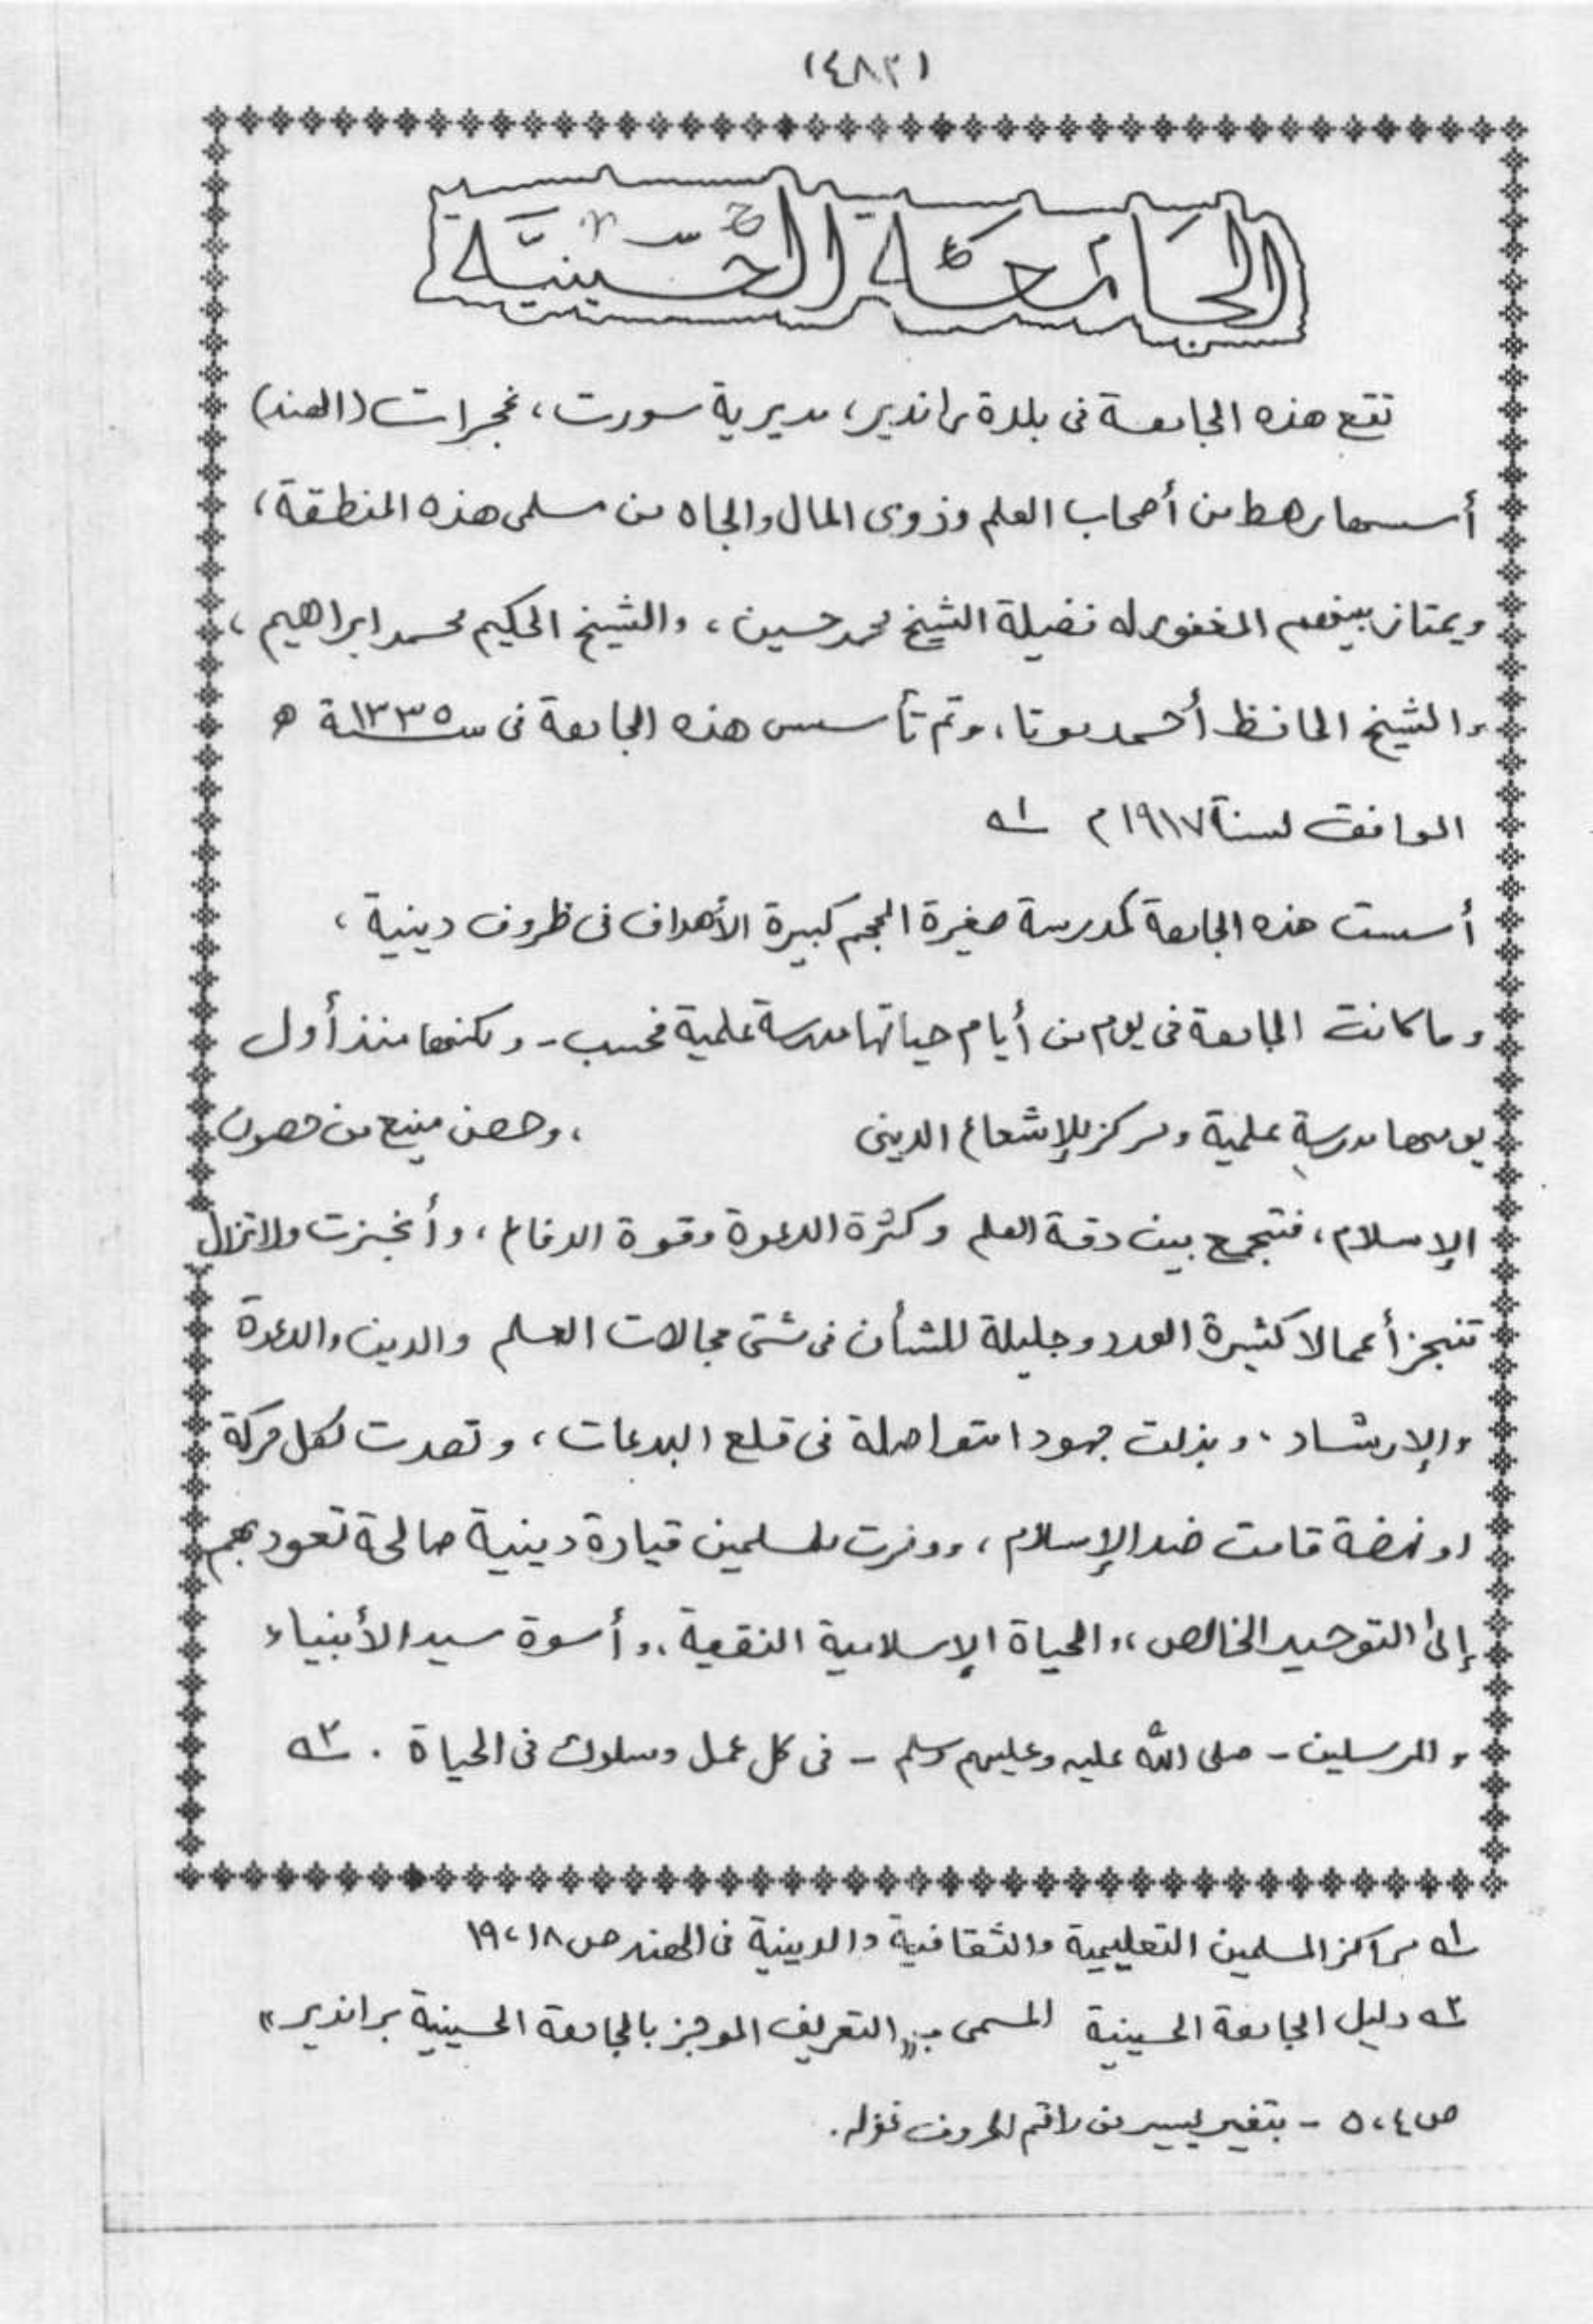 (٤٨٢)
الجَامعَة الحُسَينيَّة
تقع هذه الجامعة فى بلدة راندير، مديرية سورت، غجرات (الهند)
أسسها رهط من أصحاب العلم وذوى المال والجاه من مسلمى هذه المنطقة،
ويمتاز بينهم المغفور له فضيلة الشيخ محمد حسين، والشيخ الحكيم محمد ابراهيم،
والشيخ الحافظ أحمد موتا، وتم تأسيس هذه الجامعة فى سنة ١٣٣٥ ه
الموافق لسنة ١٩١٧م ١ه
أسست هذه الجامعة كمدرسة صغيرة الحجم كبيرة الأهداف فى ظروف دينية،
وما كانت الجامعة فى يوم من أيام حياتها مدرسة علمية فحسب - ولكنها منذ أول
يومها مدرسة علمية ومركز للإشعاع الدينى ، وحصن منيع من حصون
الإسلام، فتجمع بين دقة العلم وكثرة الدعوة وقوة الدفاع، وأنجزت ولا تزال
تنجز أعمالا كثيرة العدد وجليلة للشأن فى شتى مجالات العلم والدين والدعوة
والإرشاد. وبذلت جهودا متواصلة فى قلع البدعات، وتصدت لكل حركة
او نهضة قامت ضد الإسلام، ووفرت للمسلمين قيادة دينية صالحة تعود بهم
إلى التوحيد الخالص، والحياة الإسلامية النقية، وأسوة سيد الأنبياء
والمرسلين - صلى الله عليه وعليهم وسلم - فى كل عمل وسلوك فى الحياة. ٢ه
١ه مراكز المسلمين التعليمية والثقافية والدينية فى الهند ص ١٨، ١٩
٢ه دليل الجامعة الحسينية المسمى بـ «التعريف الموجز بالجامعة الحسينية براندير»
ص ٤، ٥ - بتغير يسير من راقم الحروف غفرله.